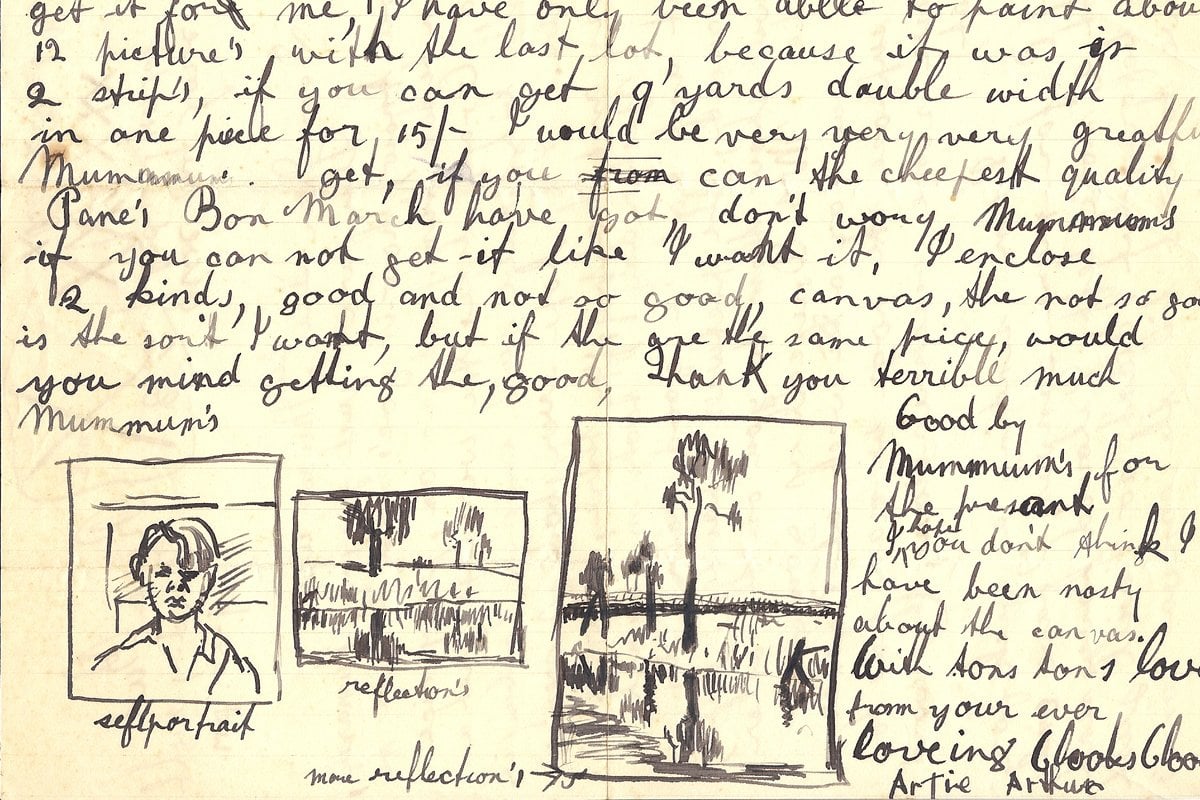 get it for me, I have only been able to paint abou
12 picture's with the last lot, because it was is
2 strip's, if you can get 9 yards double width
in one piece for 15/- I would be very very very greatfu
Mummum. get, if you from can the cheepest quality
Pane's Bon March have got, don't wory Mummum's
if you can not get it like I want it, I enclose
2 kinds, good and not so good, canvas, the not so goo
is the sort I want, but if the are the same price, would
you mind getting the, good, Thank you terrible much
Mummum's
Good by
Mummum's for
the present
I hope you don't think I
have been nasty
about the canvas.
With tons tons love
from your ever
loveing
Artie Arthur
seflportrait
reflection's
more reflection's